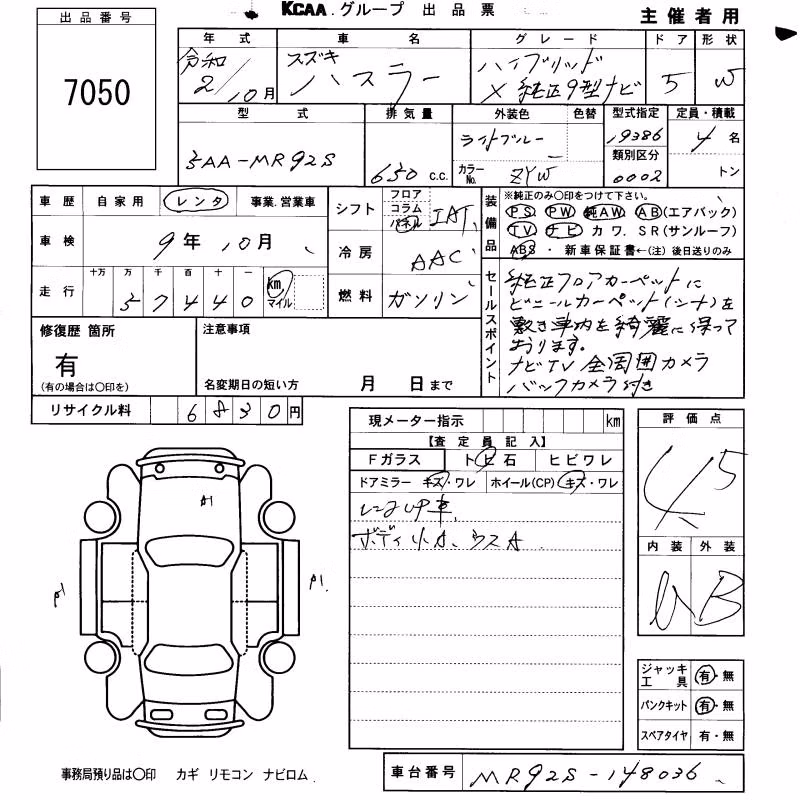 KCAA グループ 出品票
主催者用
出品番号
7050
年式 車名 グレード ドア 形状
令和 2/10月 スズキ ハスラー ハイブリッド X 純正9型ナビ 5 W
型式 排気量 外装色 色替 型式指定 定員・積載
5AA-MR92S 650 c.c. ライトブルー カラーNo. ZYW 19386 4名
類別区分 0002 トン
車歴 自家用 レンタ 事業.営業車
シフト フロア コラム パネル IAT
車検 9年10月
冷房 AAC
走行 十万 万 千 百 十 一
57440 km マイル
燃料 ガソリン
装備品 ※純正のみ○印をつけて下さい。
PS PW 純AW AB(エアバック)
TV ナビ カワ. SR(サンルーフ)
ABS・新車保証書←(注)後日送りのみ
セールスポイント
純正フロアカーペットに
ビニールカーペット(シート)を
敷き車内を綺麗に保って
おります。
ナビTV 全周囲カメラ
バックカメラ付き
修復歴 箇所 注意事項
有
(有の場合は○印を) 名変期日の短い方 月 日まで
リサイクル料 6830円
現メーター指示 km
【査定員記入】
Fガラス トビ石 ヒビワレ
ドアミラー キズ・ワレ ホイール(CP) キズ・ワレ
レンタUP車
ボディ小A、ウスA
A1
A1
A1
評価点
4.5
内装 外装
B
ジャッキ工具 有・無
パンクキット 有・無
スペアタイヤ 有・無
事務局預り品は○印 カギ リモコン ナビロム
車台番号 MR92S-148036